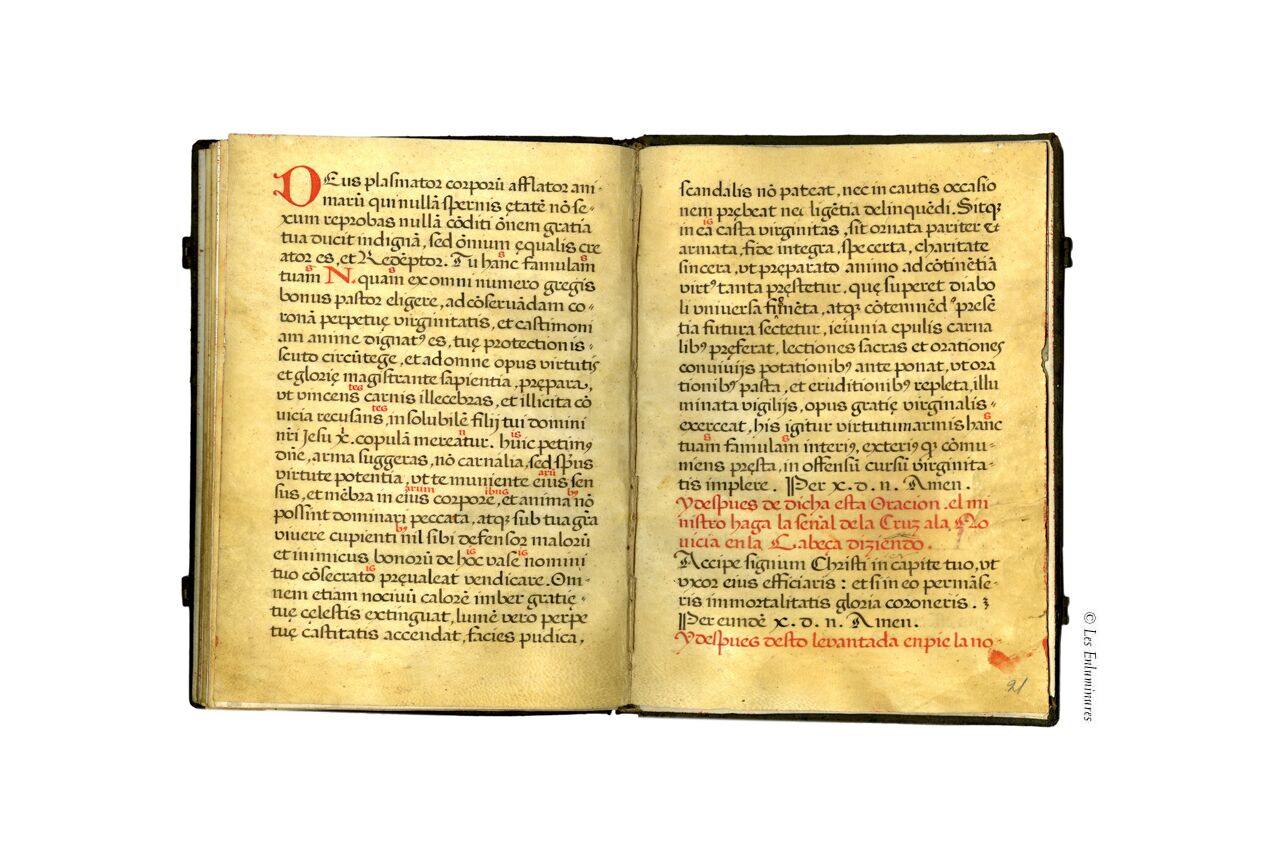 DEus plasmator corporū afflator ani-
marū qui nullā spernis ętatē nō se-
xum reprobas nullā cōditi ōnem gratia
tua ducit indignā, sed ōnium ęqualis cre
ator es, et Redēptor. Tu hanc famulam
s s
tuam N. quam ex omni numero gregis
s s
bonus pastor eligere, ad cōservāndam co-
ronā perpetuę virginitatis, et castimoni
am anime dignatꝰ es, tuę protectionis
scuto circūtege, et ad omne opus virtutis
et glorię magistrante sapientia, prępara,
ut vincens carnis illecebras, et illicita cō
tes
nubia recusans, in solubile filij tui domini
tes
nr̄i Jesu x̄. copulā mereatur. huic petimꝰ
u is
dn̄e, arma suggeras, nō carnalia, sed sp̄us
virtute potentia, ut te muniente eius sen
arū
sus, et mēbra in eius corpore, et anima nō
arum ibus bꝰ
possint dominari peccata, atqꝫ sub tua gr̄a
vivere cupienti nil sibi defensor malorū
bꝰ
et inimicus bonorū de hoc vase nomini
is is
tuo cōsecrato pręvaleat vendicare. Om-
is
nem etiam nocivū calorē imber gratię
tuę cęlestis extinguat, lumē vero perpe
tuę castitatis accendat, facies pudica,
scandalis nō pateat, nec in cautis occasio
nem prębeat nec ligētia delinquēdi. Sitqꝫ
in eā casta virginitas, sit ornata pariter et
is
armata, fide integra, spe certa, charitate
sincera, ut pręparato animo ad cōtinētiā
virtꝰ tanta pręstetur, quę superet diabo
li universa figmēta, atqꝫ cōtemnēdo pręsē
tia futura sectetur, ieiunia epulis carna
libꝰ pręferat, lectiones sacras et orationes
conviuijs potationibꝰ ante ponat, ut ora
tionibꝰ pasta, et eruditionibꝰ repleta, illu
minata vigilijs, opus gratię virginalis
exerceat, his igitur virtutum armis hanc
s
tuam famulam interiꝰ, exteriꝰ qꝫ cōmu-
s s
niens pręsta, in offensū cursū virginita-
tis implere. Per x. d. n. Amen.
Ydespues de dicha esta Oracion. el mi
nistro haga la señal dela Cruz ala, No
uicia en la Cabeça diziendo.
Accipe signum Christi in capite tuo, ut
uxor eius efficiaris: et si in eo permāse-
ris immortalitatis gloria coroneris. ꝫ
Per eundē x. d. n. Amen.
Ydespues desto levantada enpie la no-
21
© Les Enluminures